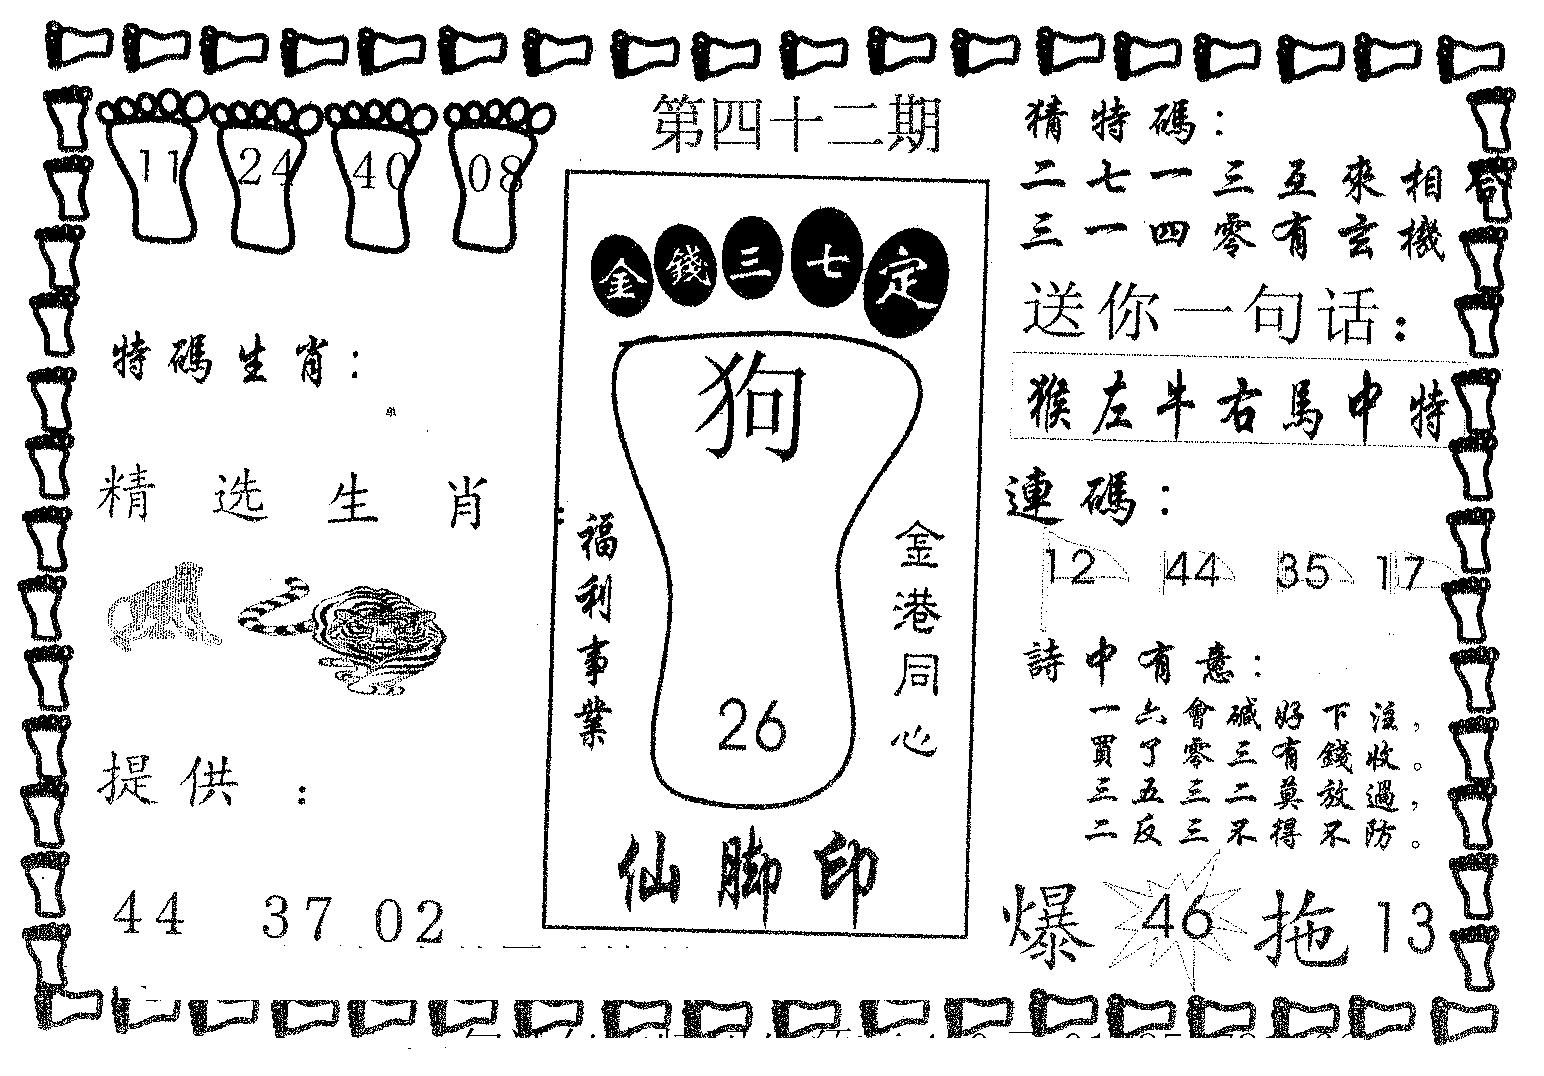 第四十二期
11 24 40 08
特碼生肖：
单
精选生肖：
提供：
44 37 02
金錢三七定
狗
福利事業
金港同心
26
仙脚印
猜特碼：
二七一三互來相
三一四零有玄機
送你一句话：
猴左牛右馬中特
連碼：
12 44 35 17
詩中有意：
一六會碱好下注，
買了零三有錢收。
三五三二莫放過，
二反三不得不防。
爆 46 拖 13